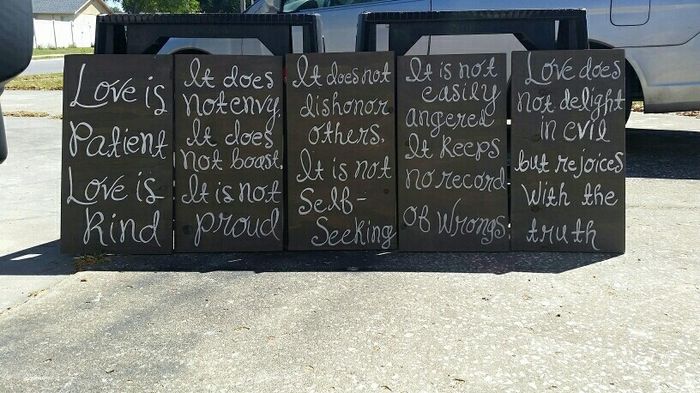 Love is
Patient
Love is
Kind
It does
not envy.
It does
not boast.
It is not
proud
It does not
dishonor
others.
It is not
Self-
Seeking
It is not
easily
angered
It keeps
no record
of Wrongs
Love does
Not delight
in evil
but rejoices
With the
truth